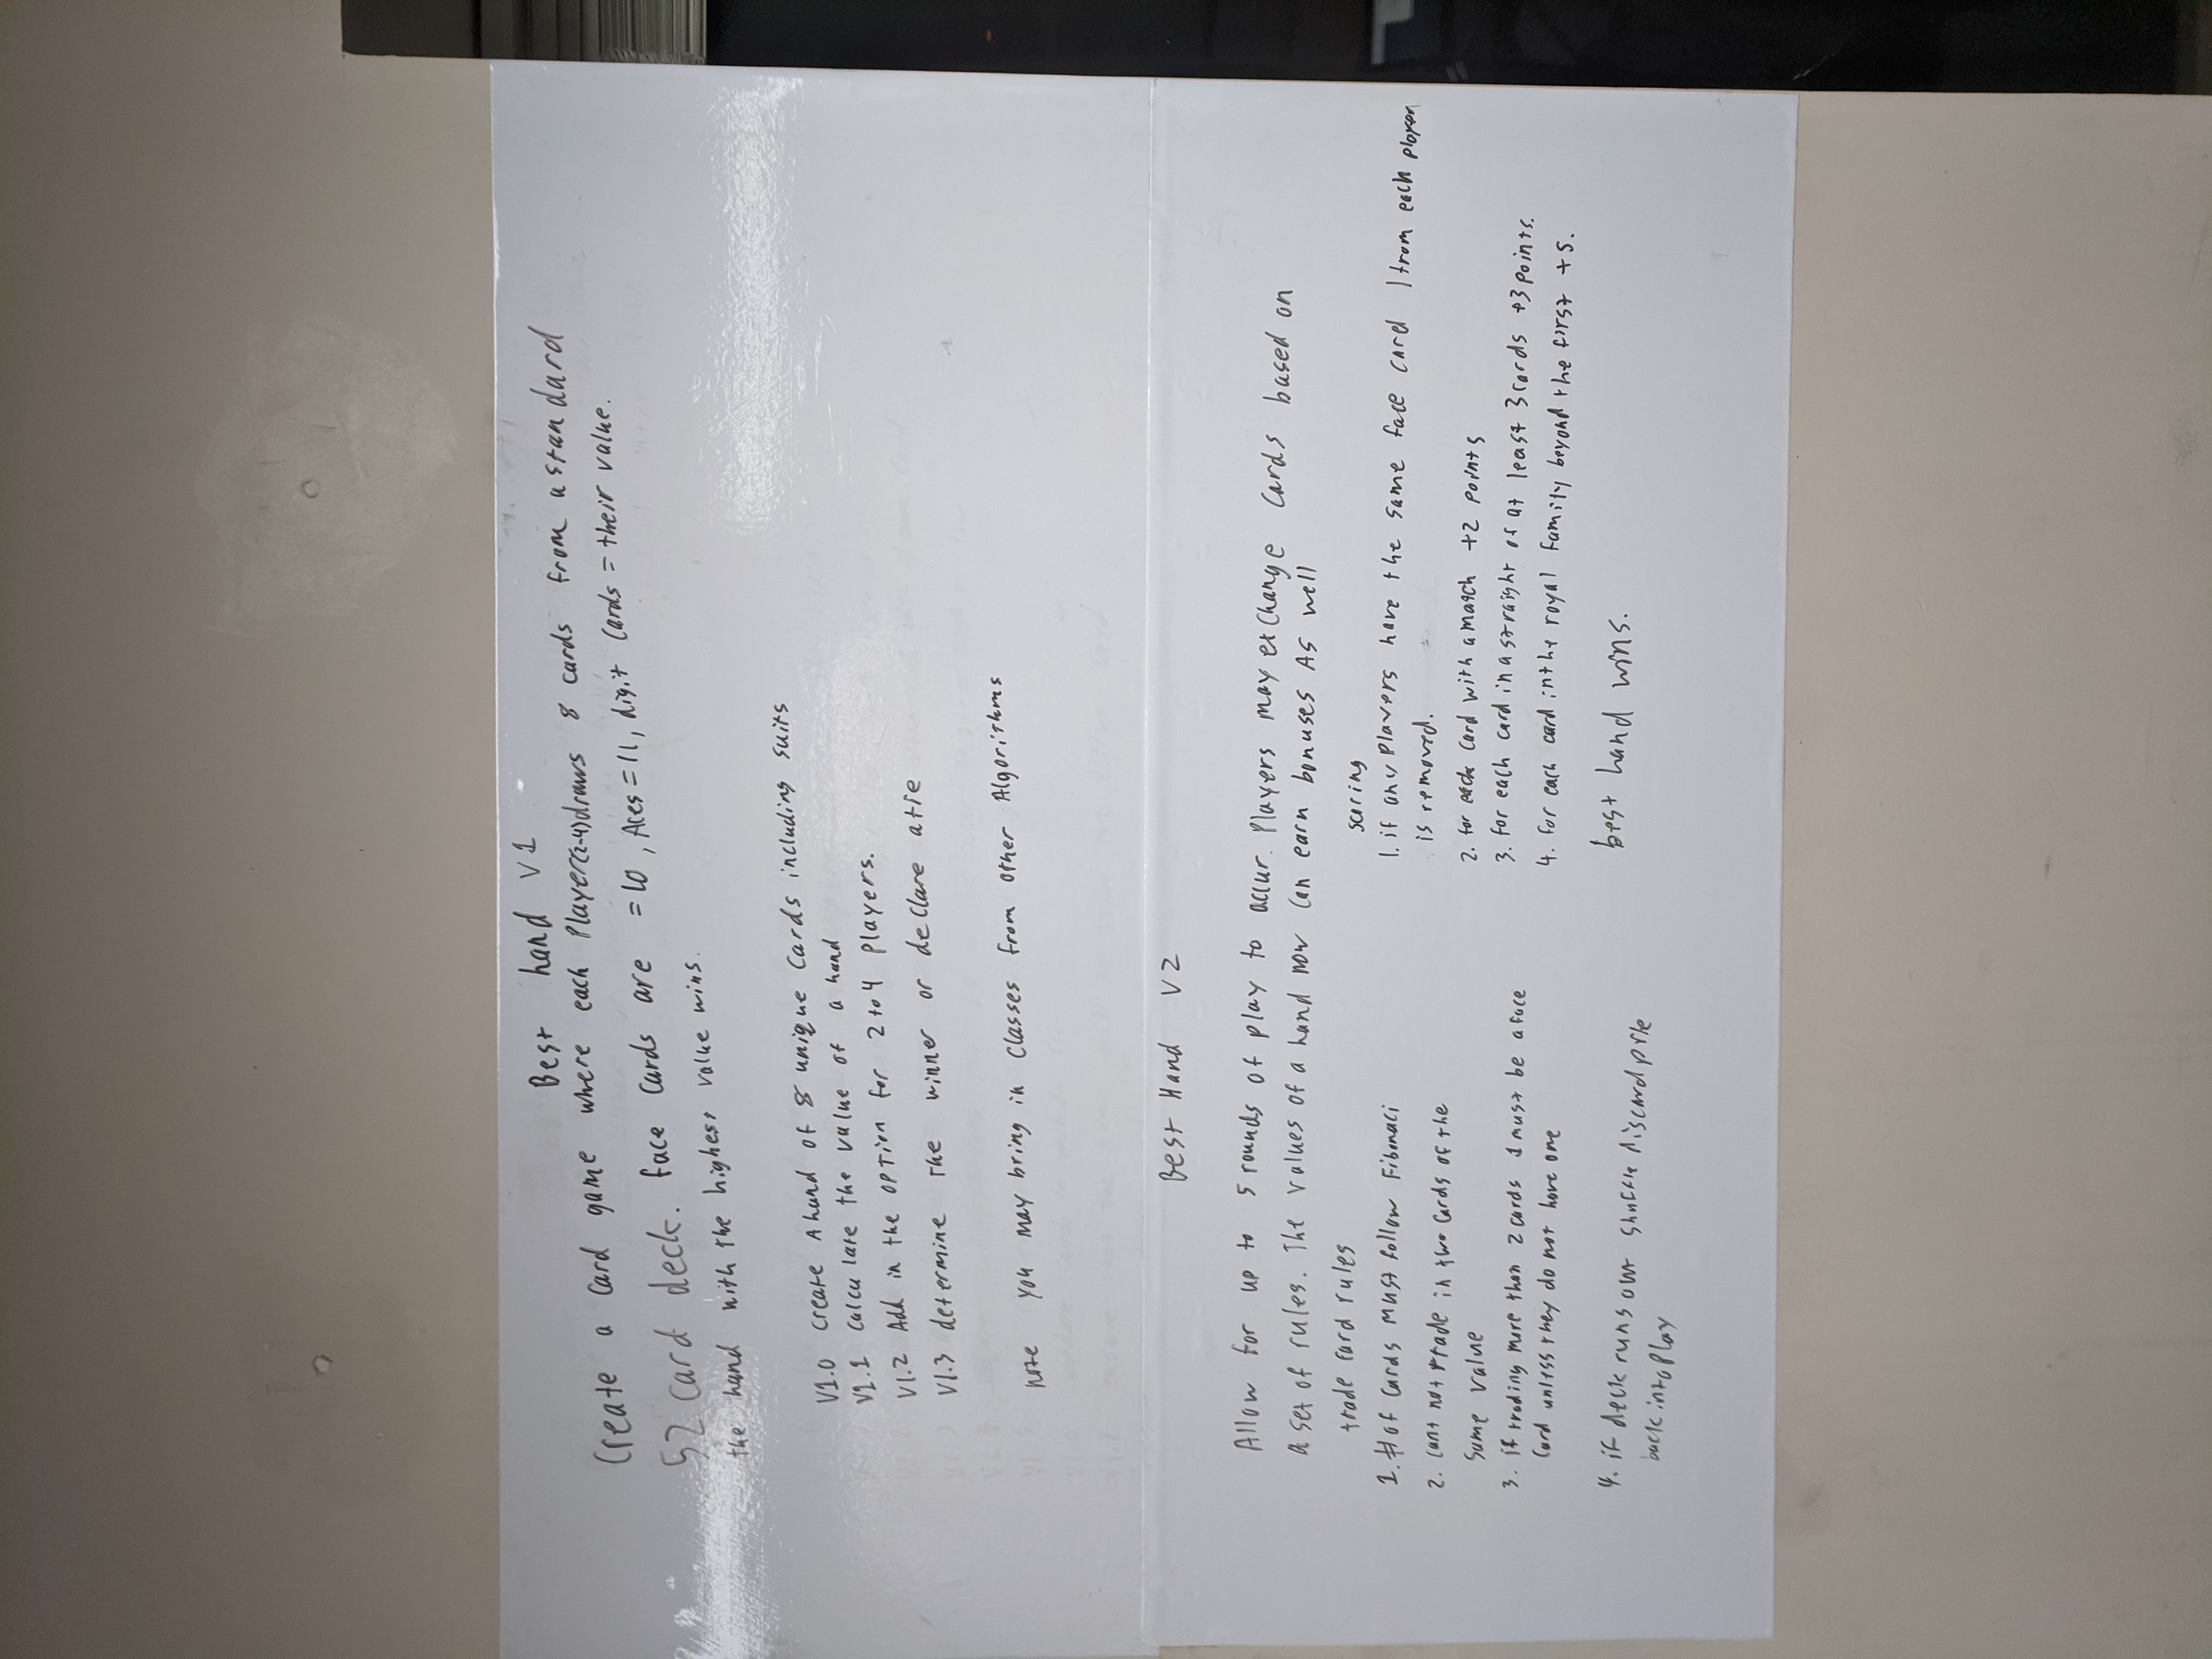 Best hand V1
Create a card game where each Player(2-4) draws 8 cards from a standard
52 card deck. face cards are = 10, Aces = 11, digit cards = their value.
the hand with the highest value wins.
V1.0 create A hand of 8 unique cards including suits
V1.1 calculate the value of a hand
V1.2 Add in the option for 2 to 4 players.
V1.3 determine the winner or declare a tie
note you may bring in classes from other Algorithms
Best Hand V2
Allow for up to 5 rounds of play to occur. Players may exchange cards based on
a set of rules. The values of a hand now can earn bonuses As well
trade card rules
1. # of cards must follow Fibonaci
2. cant not trade in two cards of the
same value
3. if trading more than 2 cards 1 must be a face
card unless they do not have one
4. if deck runs out shuffle discard pile
back into play
scoring
1. if any players have the same face card 1 from each player
is removed.
2. for each card with a match +2 points
3. for each card in a straight of at least 3 cards +3 points.
4. for each card in the royal family beyond the first +5.
best hand wins.